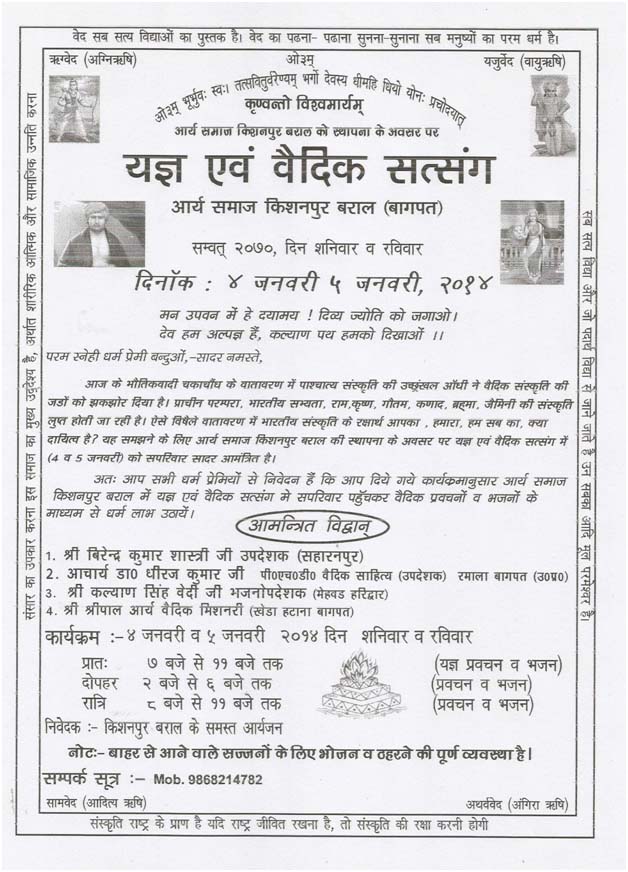 वेद सब सत्य विद्याओं का पुस्तक है। वेद का पढना- पढाना सुनना-सुनाना सब मनुष्यों का परम धर्म है।
ऋग्वेद (अग्निऋषि)
ओ३म्
यजुर्वेद (वायुऋषि)
ओ३म् भूर्भुवः स्वः तत्सवितुर्वरेण्यम् भर्गो देवस्य धीमहि धियो योनः प्रचोदयात्
कृण्वन्तो विश्वमार्यम्
आर्य समाज किशनपुर बराल को स्थापना के अवसर पर
यज्ञ एवं वैदिक सत्संग
आर्य समाज किशनपुर बराल (बागपत)
सम्वत् २०७०, दिन शनिवार व रविवार
दिनॉक : ४ जनवरी ५ जनवरी, २०१४
मन उपवन में हे दयामय ! दिव्य ज्योति को जगाओ।
देव हम अल्पज्ञ हैं, कल्याण पथ हमको दिखाओं ।।
परम स्नेही धर्म प्रेमी बन्दुओं,–सादर नमस्ते,
आज के भौतिकवादी चकाचौंध के वातावरण में पाश्चात्य संस्कृति की उच्छृंखल ऑधी ने वैदिक संस्कृति की
जडों को झकझोर दिया है। प्राचीन परम्परा, भारतीय सभ्यता, राम,कृष्ण, गौतम, कणाद, ब्रह्मा, जैमिनी की संस्कृति
लुप्त होती जा रही है। ऐसे विषैले वातावरण में भारतीय संस्कृति के रक्षार्थ आपका , हमारा, हम सब का, क्या
दायित्व है? यह समझने के लिए आर्य समाज किशनपुर बराल की स्थापना के अवसर पर यज्ञ एवं वैदिक सत्संग में
(4 व 5 जनवरी) को सपरिवार सादर आमंत्रित है।
अतः आप सभी धर्म प्रेमियों से निवेदन हैं कि आप दिये गये कार्यक्रमानुसार आर्य समाज
किशनपुर बराल में यज्ञ एवं वैदिक सत्संग मे सपरिवार पहुँचकर वैदिक प्रवचनों व भजनों के
माध्यम से धर्म लाभ उठायें।
आमन्त्रित विद्वान्
1. श्री बिरेन्द्र कुमार शास्त्री जी उपदेशक (सहारनपुर)
2. आचार्य डा0 धीरज कुमार जी पी०एच०डी० वैदिक साहित्य (उपदेशक) रमाला बागपत (उ०प्र०)
3. श्री कल्याण सिंह वेदी जी भजनोपदेशक (मेहवड हरिद्वार)
4. श्री श्रीपाल आर्य वैदिक मिशनरी (खेडा हटाना बागपत)
कार्यक्रम :–४ जनवरी व ५ जनवरी २०१४ दिन शनिवार व रविवार
प्रातः ७ बजे से ११ बजे तक (यज्ञ प्रवचन व भजन)
दोपहर २ बजे से ६ बजे तक (प्रवचन व भजन)
रात्रि ८ बजे से ११ बजे तक (प्रवचन व भजन)
निवेदक :- किशनपुर बराल के समस्त आर्यजन
नोटः– बाहर से आने वाले सज्जनों के लिए भोजन व ठहरने की पूर्ण व्यवस्था है।
सम्पर्क सूत्र :– Mob. 9868214782
सामवेद (आदित्य ऋषि)
अथर्ववेद (अंगिरा ऋषि)
संस्कृति राष्ट्र के प्राण है यदि राष्ट्र जीवित रखना है, तो संस्कृति की रक्षा करनी होगी
संसार का उपकार करना इस समाज का मुख्य उद्देश्य है, अर्थात शारीरिक आत्मिक और सामाजिक उन्नति करना
सब सत्य विद्या और जो पदार्थ विद्या से जाने जाते है उन सबका आदि मूल परमेश्वर है।